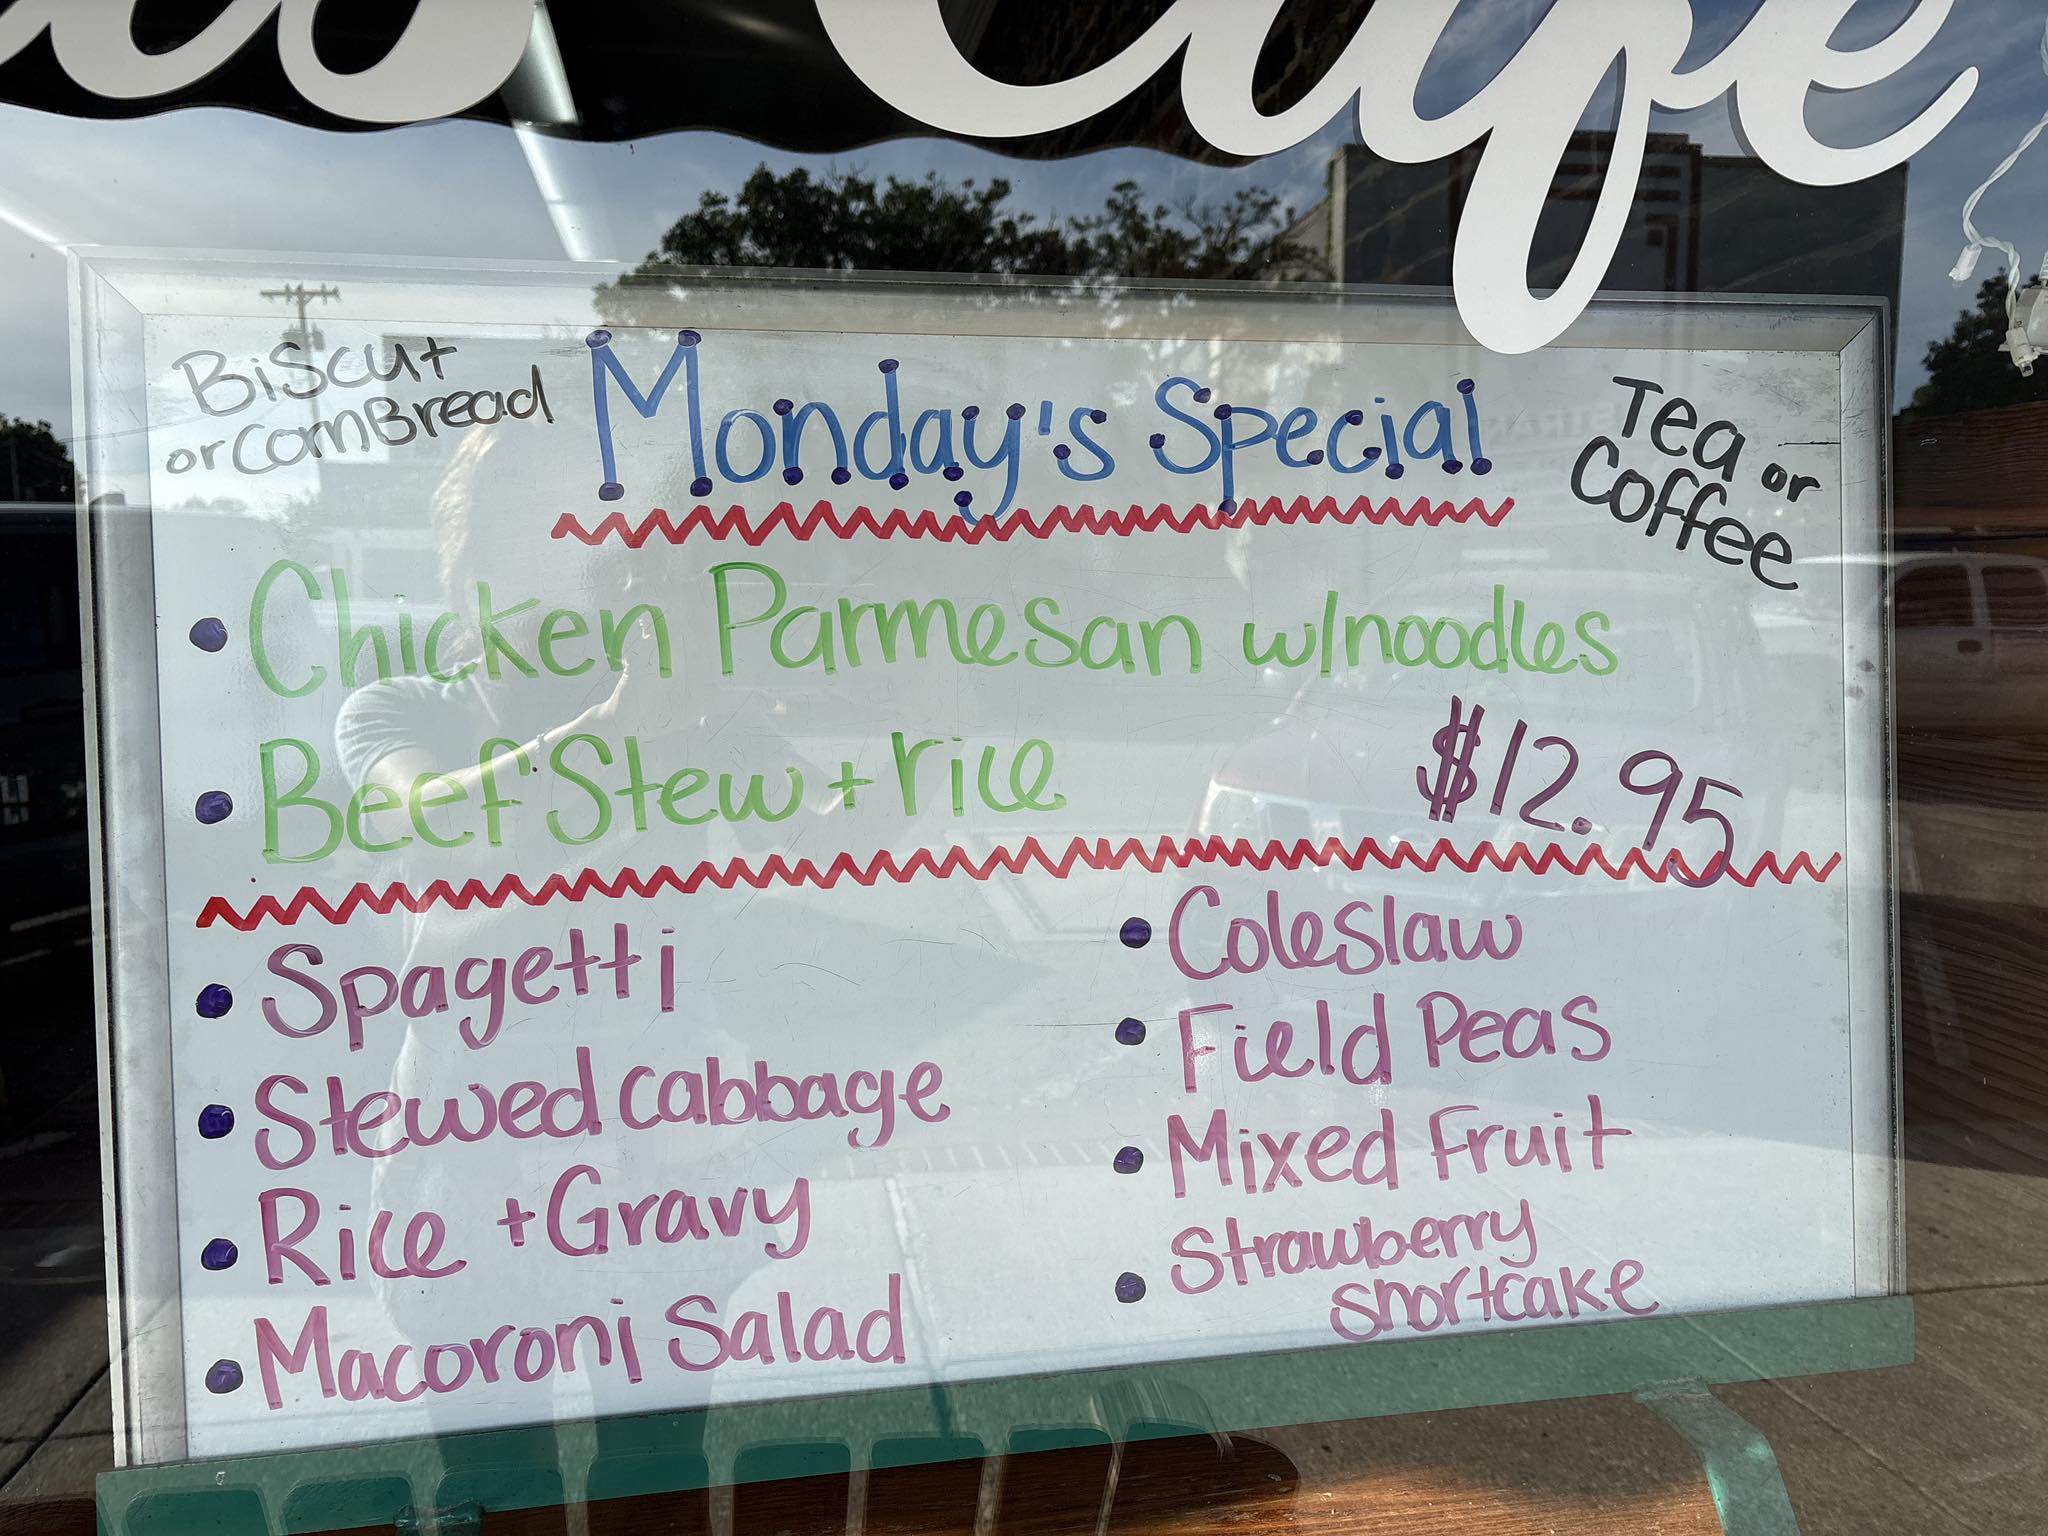 Cafe
Biscut
or CornBread
Monday's Special
Tea or
Coffee
• Chicken Parmesan w/noodles
• Beef Stew + rice
$12.95
• Spagetti
• Stewed cabbage
• Rice + Gravy
• Macoroni Salad
• Coleslaw
• Field Peas
• Mixed Fruit
• Strawberry
shortcake